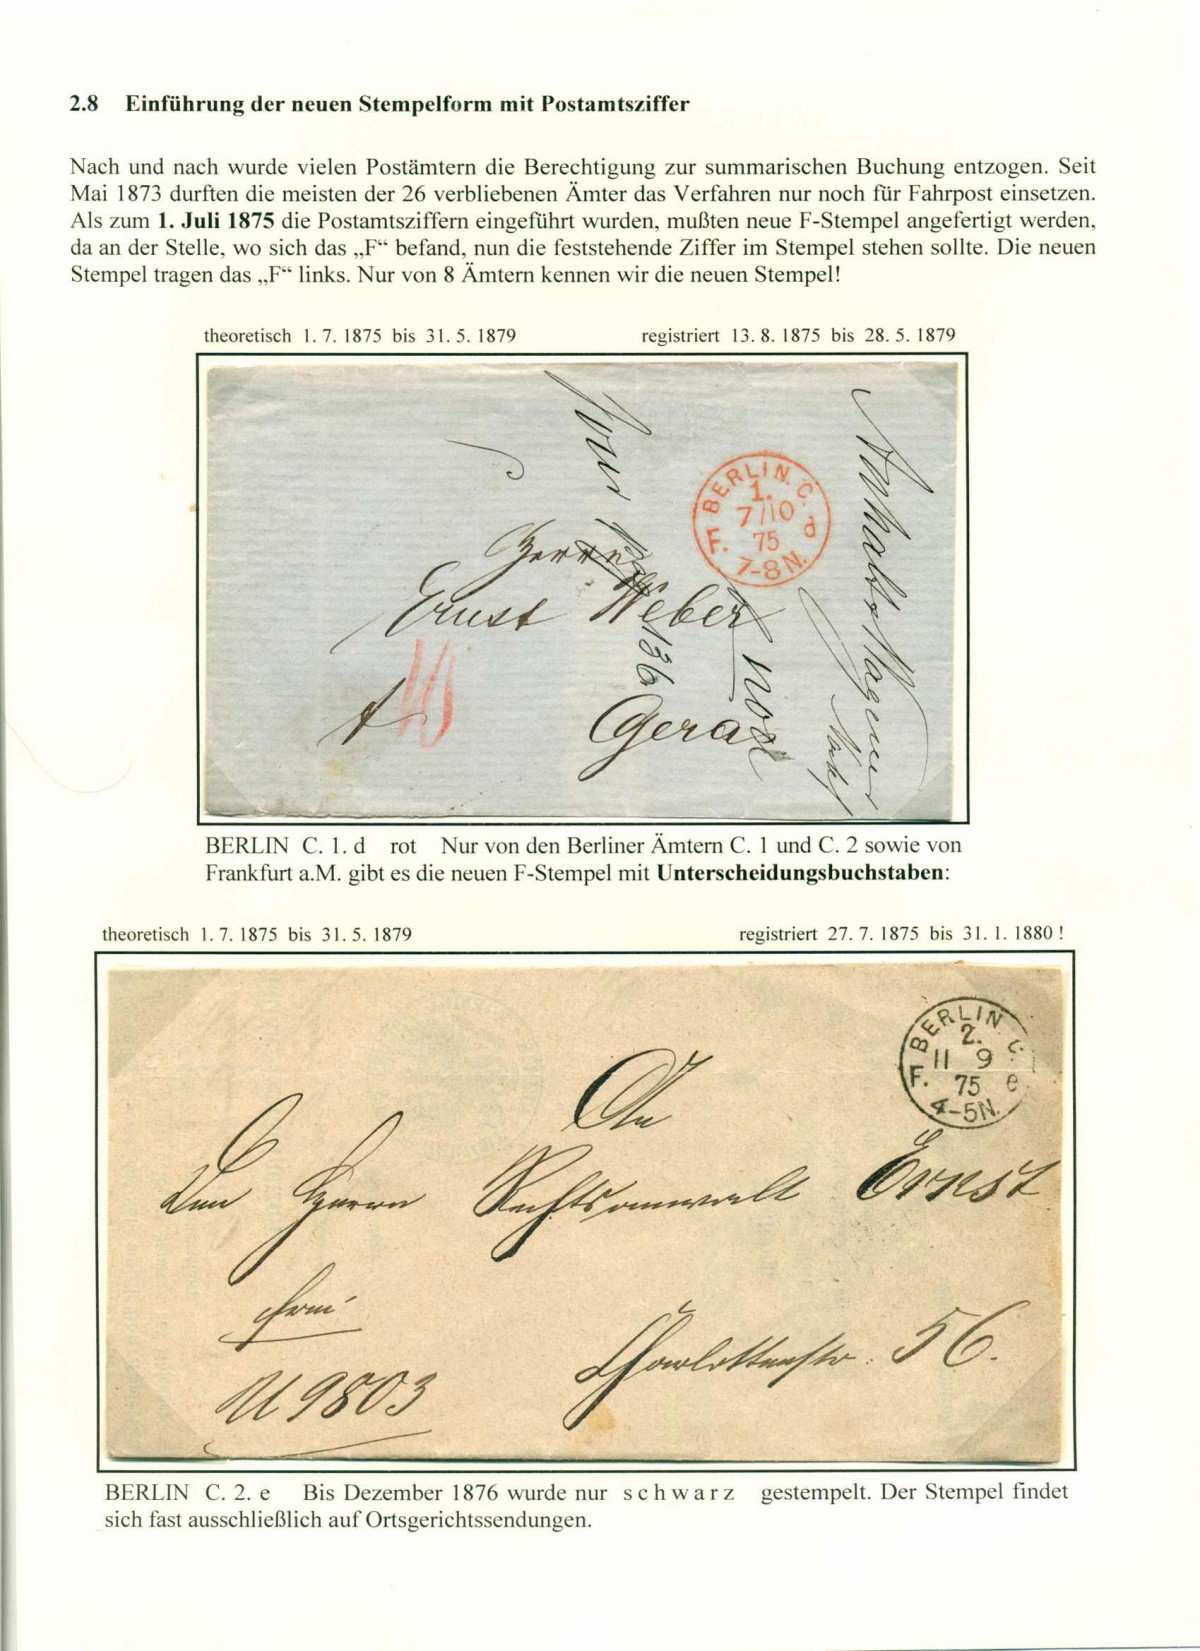 2.8 Einführung der neuen Stempelform mit Postamtsziffer
Nach und nach wurde vielen Postämtern die Berechtigung zur summarischen Buchung entzogen. Seit
Mai 1873 durften die meisten der 26 verbliebenen Ämter das Verfahren nur noch für Fahrpost einsetzen.
Als zum 1. Juli 1875 die Postamtsziffern eingeführt wurden, mußten neue F-Stempel angefertigt werden,
da an der Stelle, wo sich das „F“ befand, nun die feststehende Ziffer im Stempel stehen sollte. Die neuen
Stempel tragen das „F“ links. Nur von 8 Ämtern kennen wir die neuen Stempel!
theoretisch 1. 7. 1875 bis 31. 5. 1879 registriert 13. 8. 1875 bis 28. 5. 1879
BERLIN. C.
1.
7/10
F. 75 d
7-8N.
Herrn
Ernst Weber
Gera
BERLIN C. 1. d rot Nur von den Berliner Ämtern C. 1 und C. 2 sowie von
Frankfurt a.M. gibt es die neuen F-Stempel mit Unterscheidungsbuchstaben:
theoretisch 1. 7. 1875 bis 31. 5. 1879 registriert 27. 7. 1875 bis 31. 1. 1880 !
BERLIN C.
2.
11 9
F. 75 e
4-5N.
An
Den Herrn Rechtsanwalt Ernst
frei
Charlottenstr. 56.
9803
BERLIN C. 2. e Bis Dezember 1876 wurde nur s c h w a r z gestempelt. Der Stempel findet
sich fast ausschließlich auf Ortsgerichtssendungen.